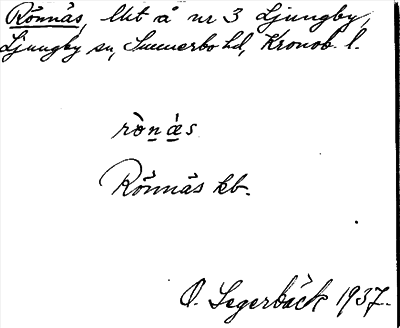 Rönnäs, lht å nr 3 Ljungby,
Ljungby sn, Sunnerbo hd, Kronob. l.
rònæ̀s
Rönnäs kb.
O. Segerbäck 1937.